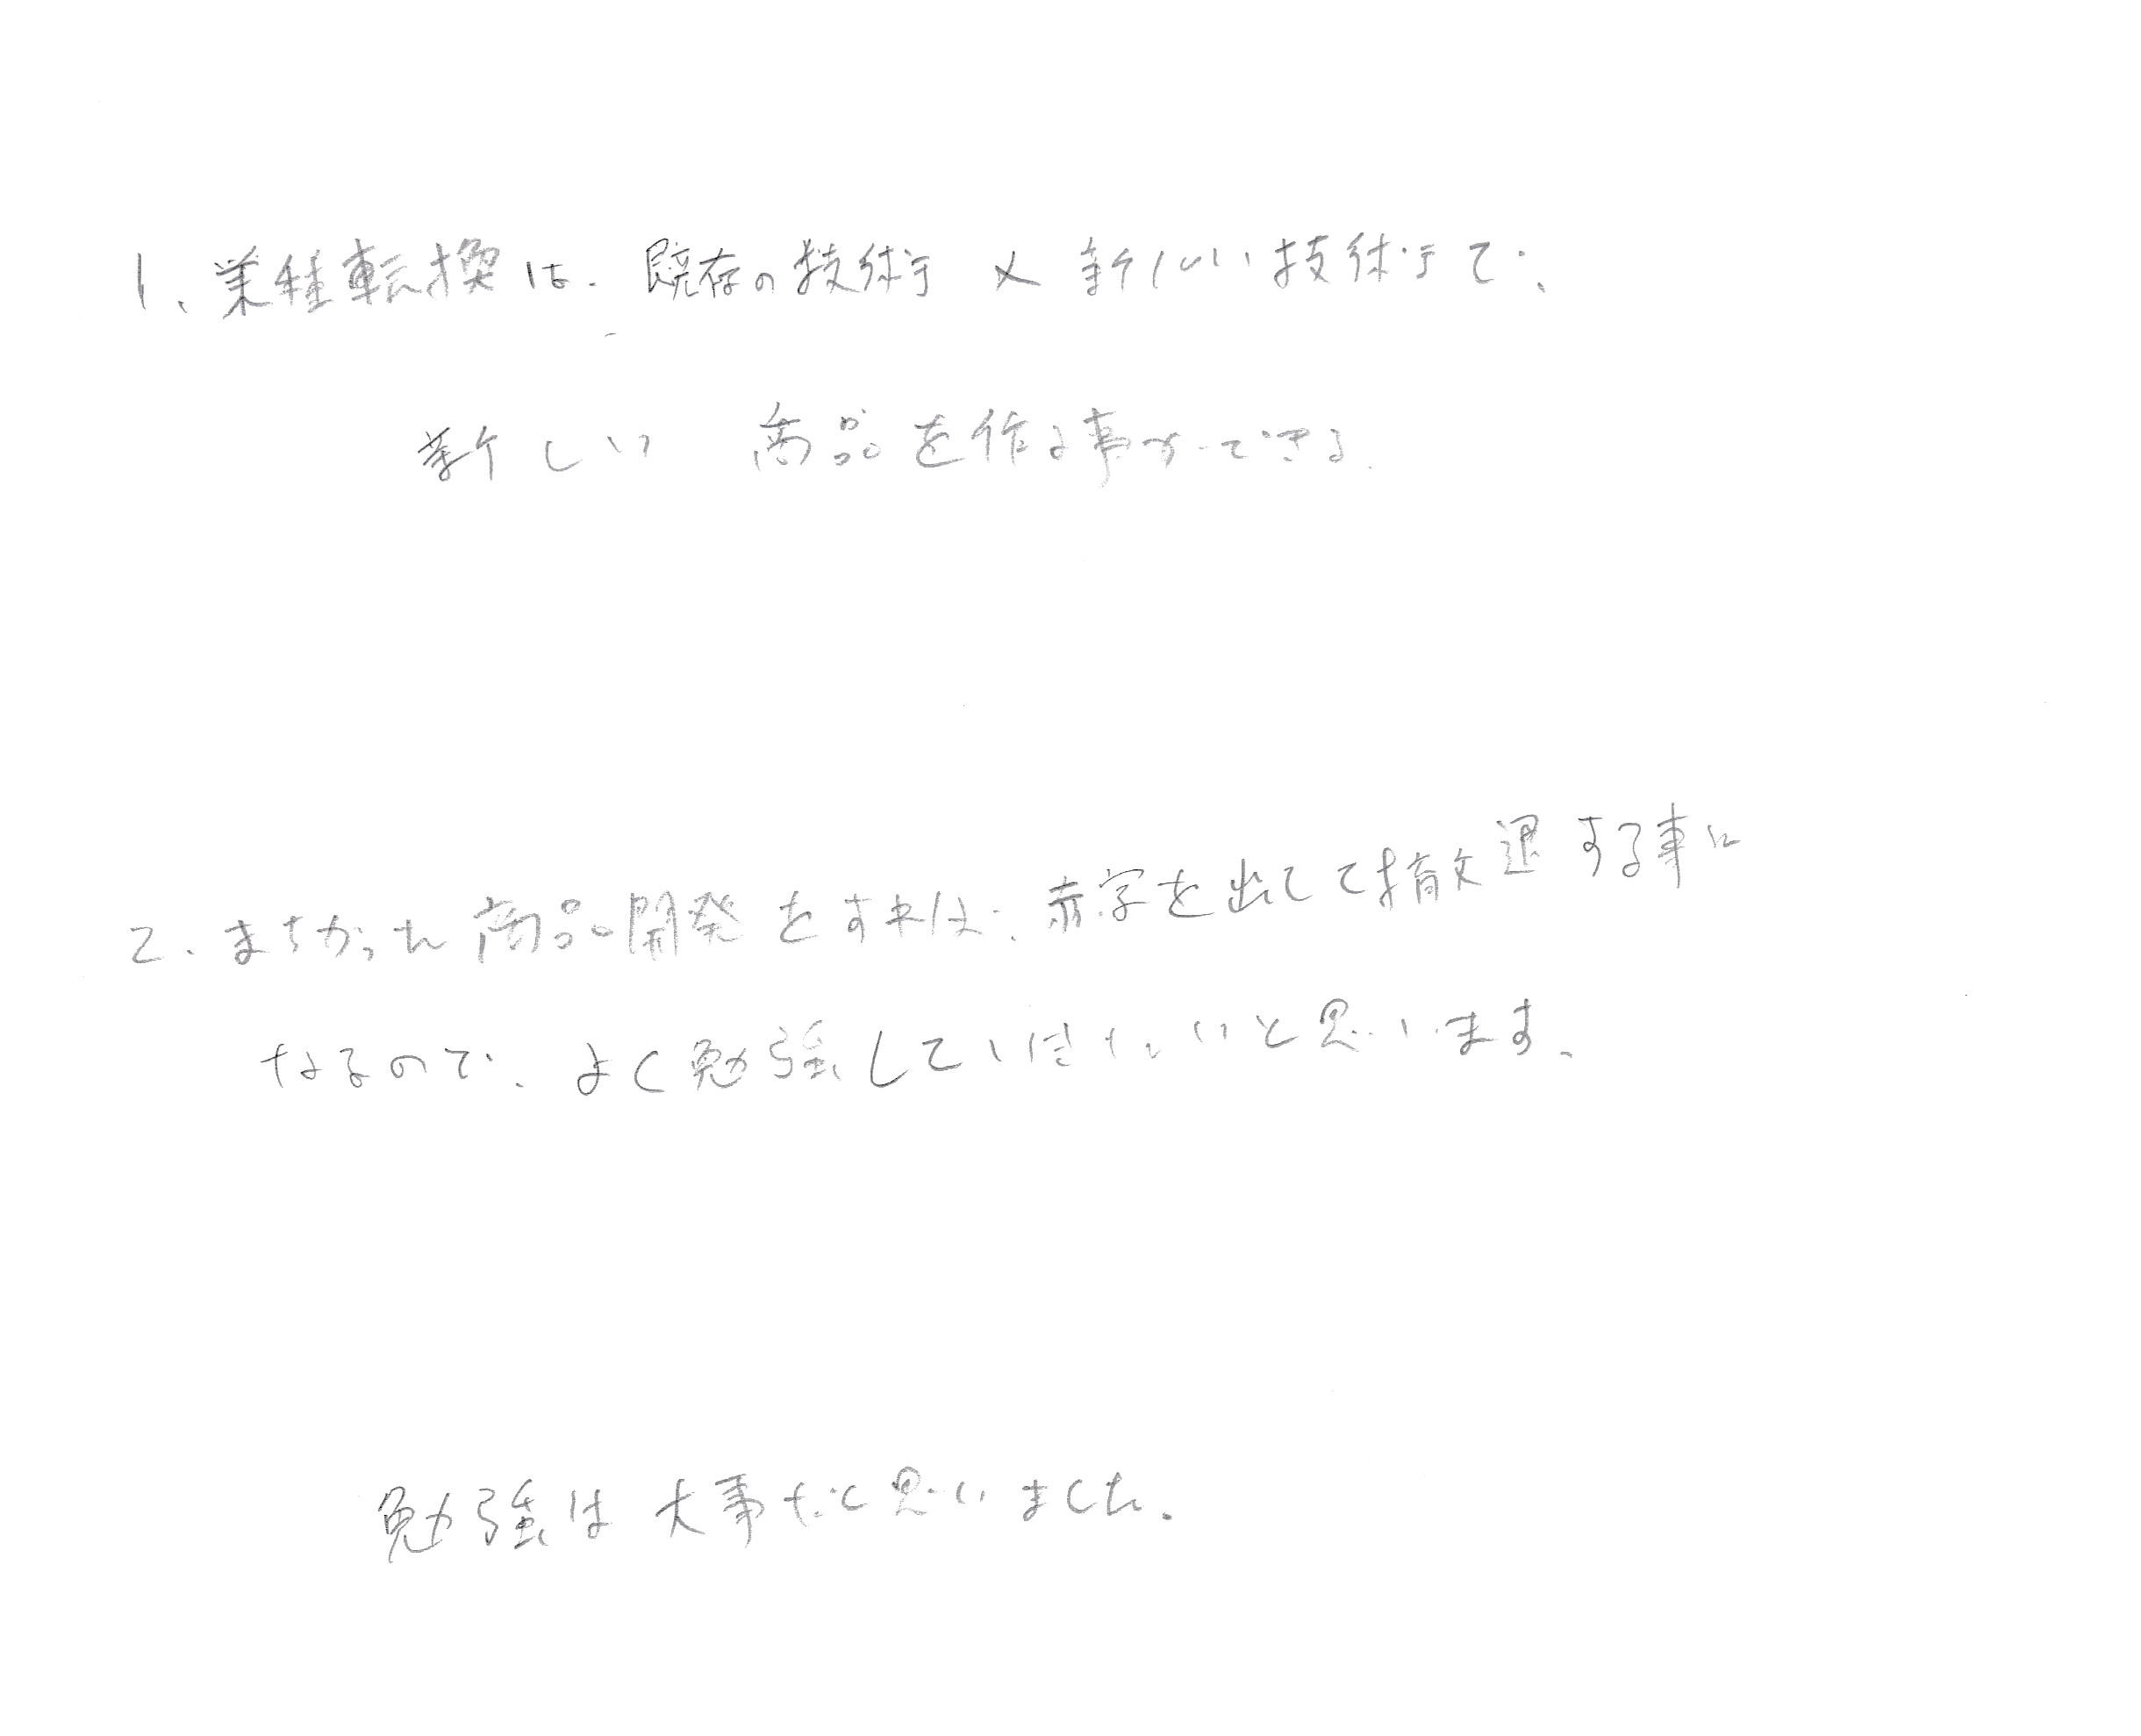 1、業種転換は、既存の技術 × 新しい技術で、
新しい 商品を作る事ができる。
2、まちがった商品開発をすれば、赤字を出して撤退する事に
なるので、よく勉強していきたいと思います。
勉強は大事だと思いました。